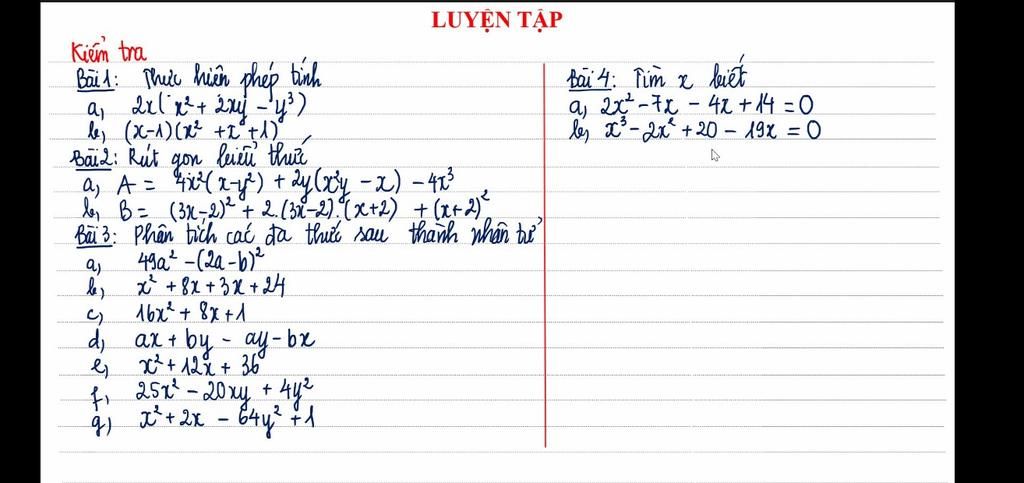 LUYỆN TẬP
Kiểm tra
Bài 1: Thực hiện phép tính
a, 2x(x² + 2xy - y³)
b, (x-1)(x² + x + 1)
Bài 2: Rút gọn biểu thức
a, A = 4x²(x-y²) + 2y(x²y - x) - 4x³
b, B = (3x-2)² + 2.(3x-2).(x+2) + (x+2)²
Bài 3: Phân tích các đa thức sau thành nhân tử
a, 49a² - (2a-b)²
b, x² + 8x + 3x + 24
c, 16x² + 8x + 1
d, ax + by - ay - bx
e, x² + 12x + 36
f, 25x² - 20xy + 4y²
g, x² + 2x - 64y² + 1
Bài 4: Tìm x biết
a, 2x² - 7x - 4x + 14 = 0
b, x³ - 2x² + 20 - 19x = 0